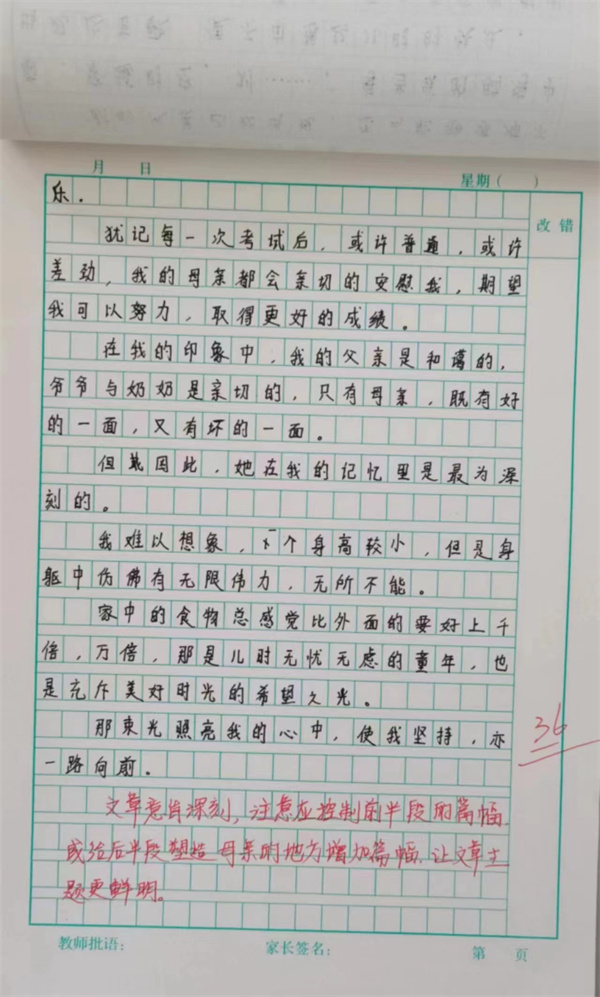 月 日 星期( )
改错
乐.
犹记每一次考试后,或许普通,或许
差劲,我的母亲都会亲切的安慰我,期望
我可以努力,取得更好的成绩。
在我的印象中,我的父亲是和蔼的,
爷爷与奶奶是亲切的,只有母亲,既有好
的一面,又有坏的一面。
但就因此,她在我的记忆里是最为深
刻的。
我难以想象,个身高较小,但是身
躯中仿佛有无限伟力,无所不能。
家中的食物总感觉比外面的要好上千
倍,万倍,那是儿时无忧无虑的童年,也
是充斥美好时光的希望久光。
那束光照亮我的心中,使我坚持,亦
一路向前。
36
文章意旨深刻,注意应控制前半段的篇幅.
或给后半段塑造母亲的地方增加篇幅.让文章主
题更鲜明。
教师批语: 家长签名: 第 页